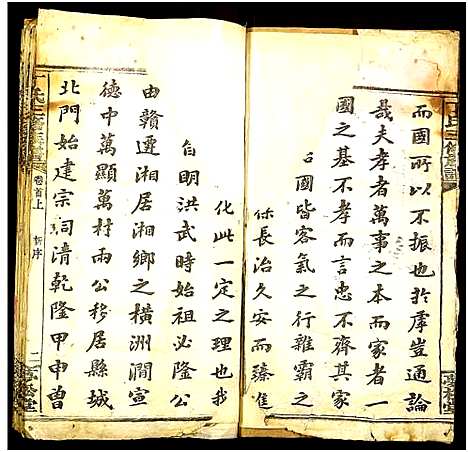 而國所以不振也於虖豈通論
哉夫孝者萬事之本而家者一
國之基不孝而言忠不齊其家
國皆客氣之行雜霸之
保長治久安而臻隹
化此一定之理也我
自明洪武時始祖必隆公
由贛遷湘居湘鄉之橫洲澗宣
德中萬顯萬村兩公移居縣城
北門始建宗祠清乾隆甲申曾
卷首上
新序
二
堂
氏三修族譜
堂